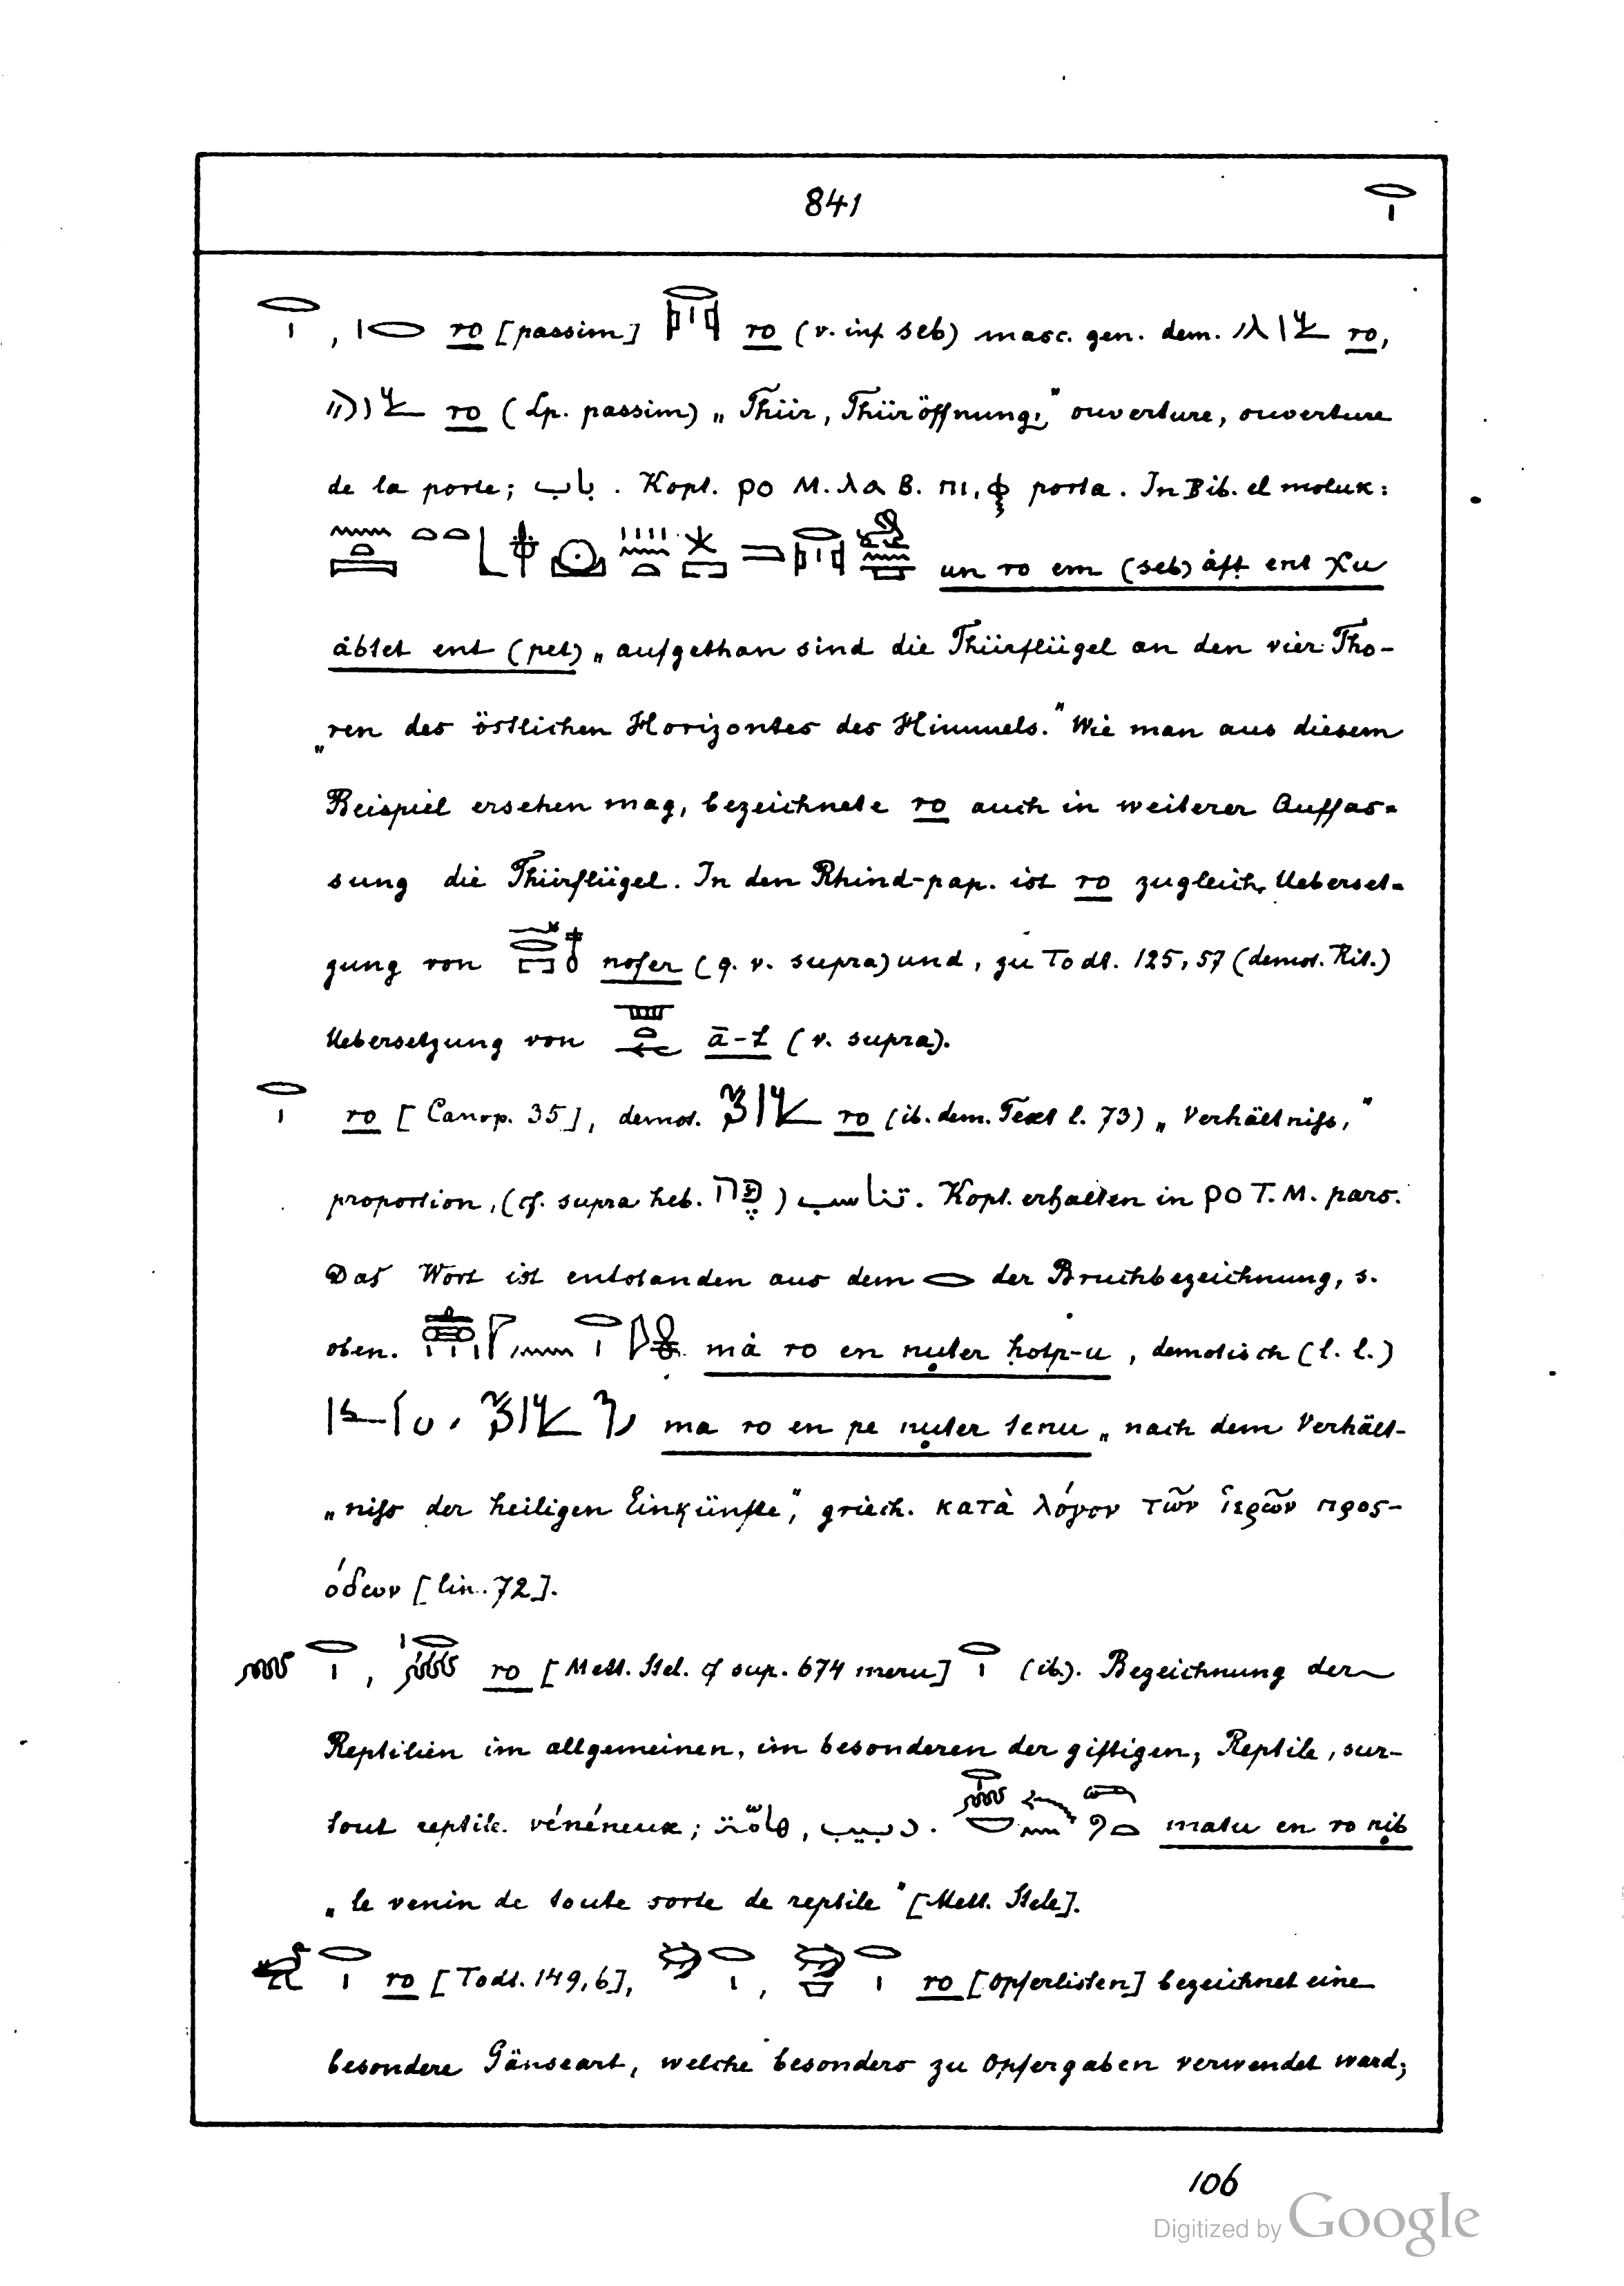 841 𓂋𓏤
𓂋𓏤, 𓏤𓂋 ro [passim] ro (v. inf seb) masc. gen. dem. ro,
ro (Lp. passim) „Thür, Thüröffnung," ouverture, ouverture
de la porte; باب. Kopt. ρο M. λα B. πι, ϕ porta. In Bib. el moluk:
un ro em (seb) àft ent χu
àbtet ent (pet) „aufgethan sind die Thürflügel an den vier Tho-
„ren des östlichen Horizontes des Himmels." Wie man aus diesem
Beispiel ersehen mag, bezeichnete ro auch in weiterer Auffas-
sung die Thürflügel. In den Rhind-pap. ist ro zugleich Ueberset-
zung von nofer (q. v. supra) und, zu Todt. 125, 57 (demot. Rit.)
Uebersetzung von ā-t (v. supra).
𓂋𓏤 ro [Canop. 35], demot. ro (ib. dem. Text l. 73) „Verhältniss,"
proportion, (cf. supra heb. פֶּה) تناسب. Kopt. erhalten in ρο T. M. pars.
Das Wort ist entstanden aus dem 𓂋 der Bruchbezeichnung, s.
oben. mà ro en nuter ḥotp-u, demotisch (l. l.)
ma ro en pe nuter tenu „nach dem Verhält-
„niss der heiligen Einkünfte," griech. κατὰ λόγον τῶν ἱερῶν προς-
όδων [lin. 72].
𓂋𓏤, ro [Mett. Stel. cf sup. 674 meru] 𓂋𓏤 (ib.). Bezeichnung der
Reptilien im allgemeinen, im besonderen der giftigen, Reptile, sur-
tout reptile vénéneux; هامّة, دبيب. matu en ro nib
„le venin de toute sorte de reptile" [Mett. Stele].
𓂋𓏤 ro [Todt. 149, 6], 𓂋𓏤, 𓂋𓏤 ro [Opferlisten] bezeichnet eine
besondere Gänseart, welche besonders zu Opfergaben verwendet ward;
106
Digitized by Google